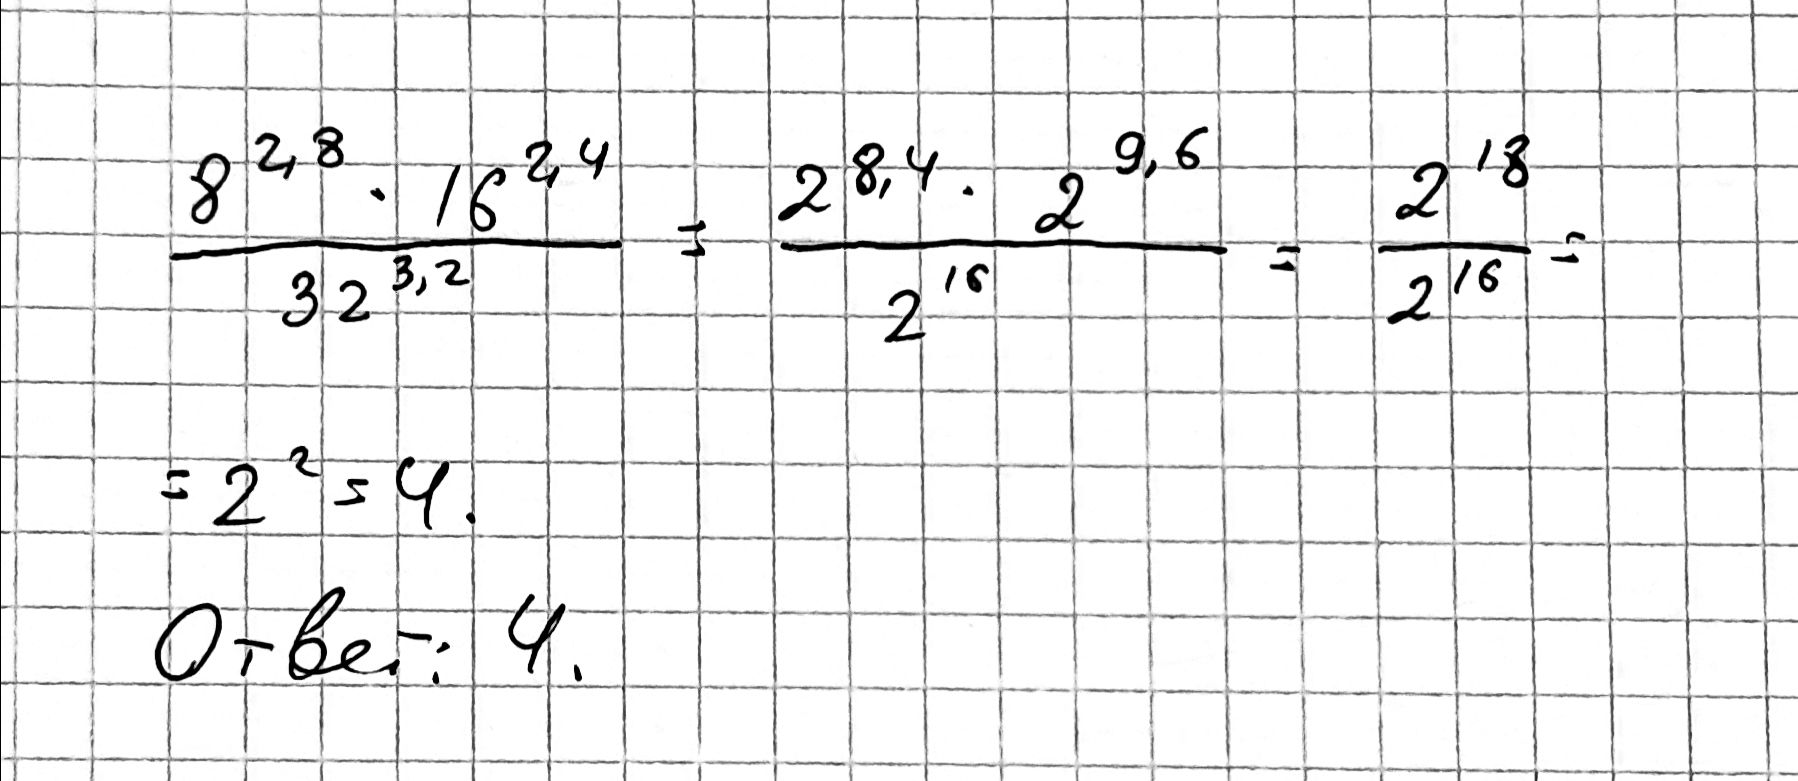 \frac{8^{2,8} \cdot 16^{2,4}}{32^{3,2}} = \frac{2^{8,4} \cdot 2^{9,6}}{2^{16}} = \frac{2^{18}}{2^{16}} =
= 2^2 = 4.
Ответ: 4.